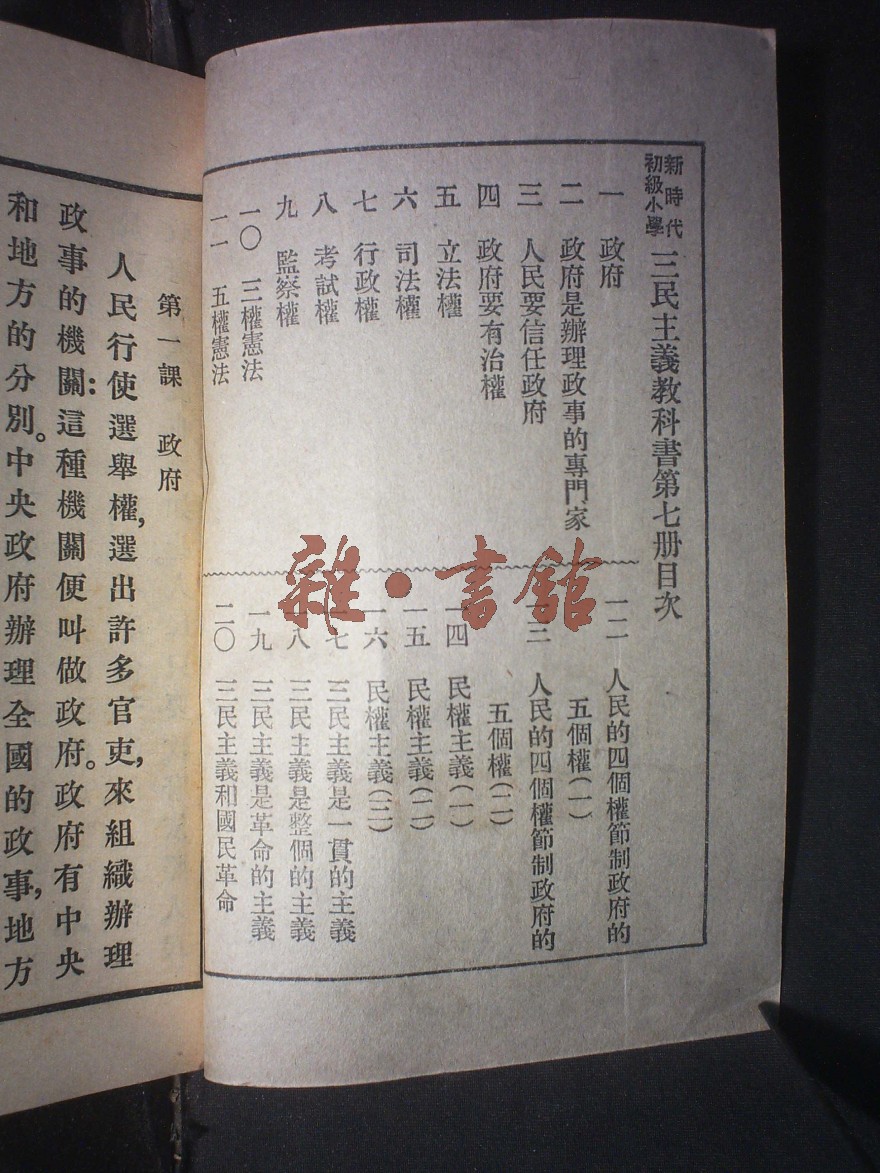 新時代
初級小學
三民主義教科書第七册目次
一 政府
二 政府是辦理政事的專門家
三 人民要信任政府
四 政府要有治權
五 立法權
六 司法權
七 行政權
八 考試權
九 監察權
一〇 三權憲法
一一 五權憲法
一二 人民的四個權節制政府的
五個權(一)
一三 人民的四個權節制政府的
五個權(二)
一四 民權主義(一)
一五 民權主義(二)
一六 民權主義(三)
一七 三民主義是一貫的主義
一八 三民主義是整個的主義
一九 三民主義是革命的主義
二〇 三民主義和國民革命
第一課 政府
人民行使選舉權,選出許多官吏,來組織辦理
政事的機關:這種機關便叫做政府。政府有中央
和地方的分別。中央政府辦理全國的政事,地方
雜·書館